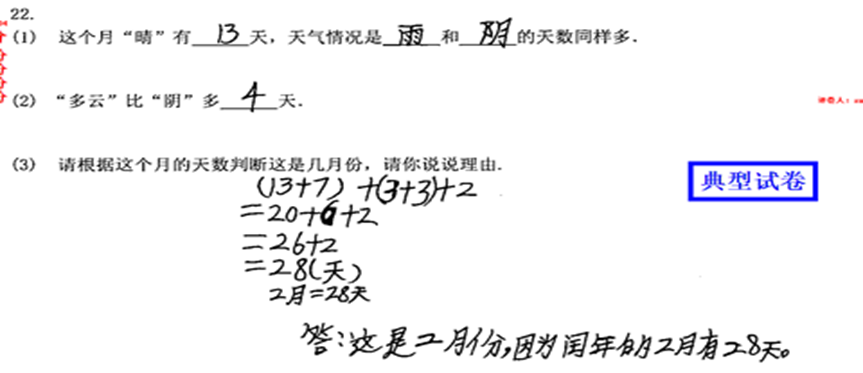 22.
(1) 这个月“晴”有 13 天，天气情况是 雨 和 阴 的天数同样多.
(2) “多云”比“阴”多 4 天.
(3) 请根据这个月的天数判断这是几月份，请你说说理由.
典型试卷
(13+7)+(3+3)+2
=20+6+2
=26+2
=28(天)
2月=28天
答:这是二月份,因为闰年的2月有28天。